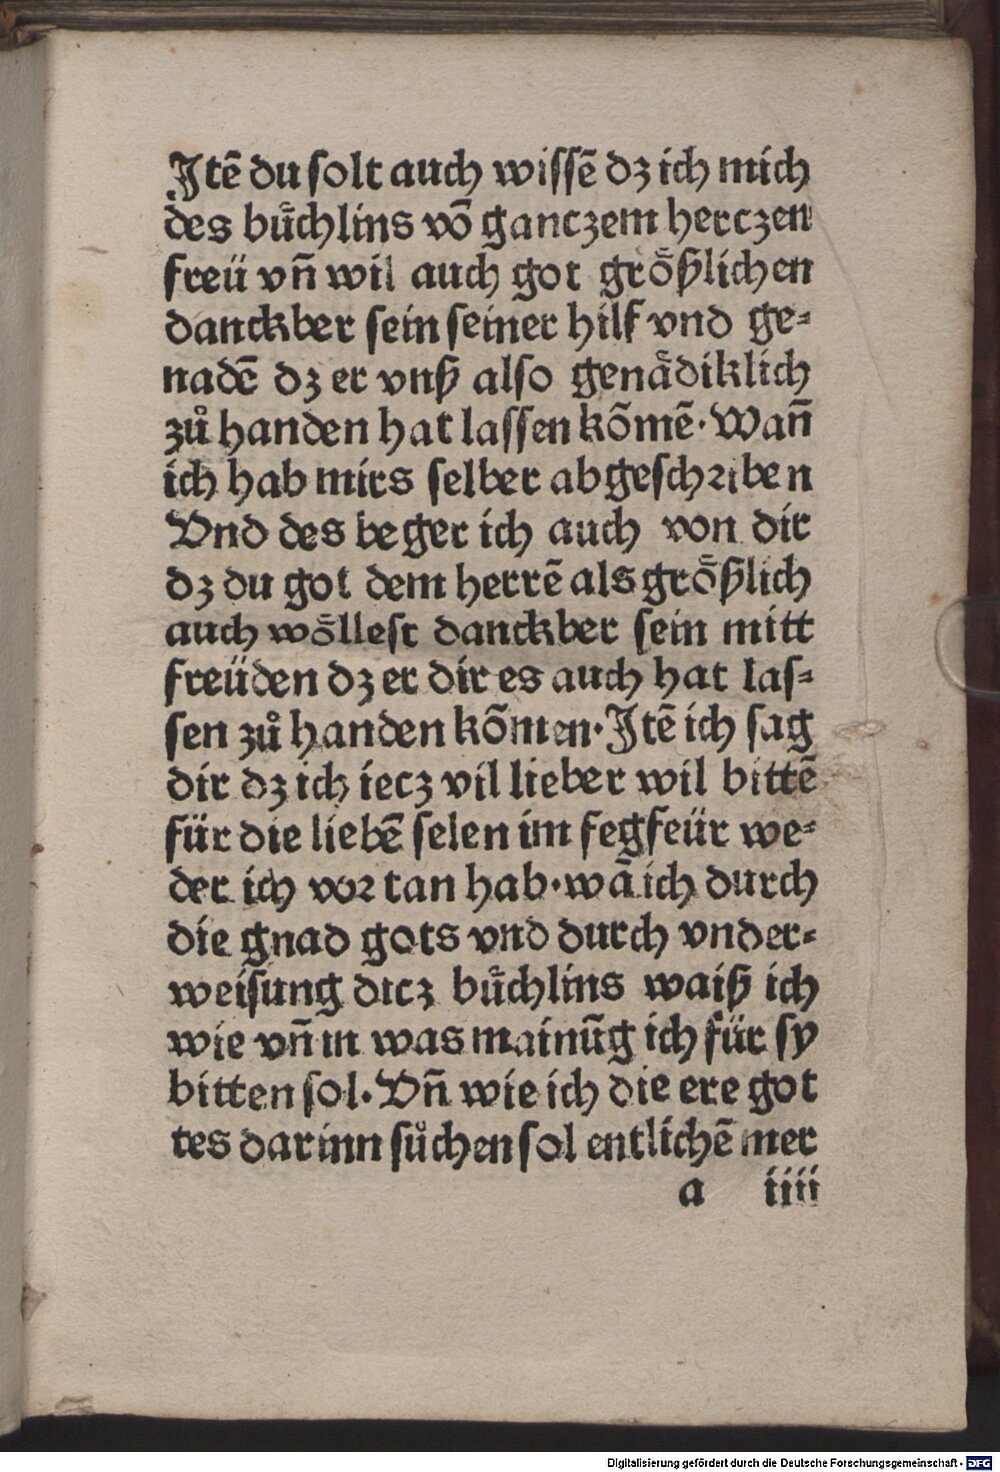 Jtē du solt auch wissē dz ich mich
des buͤchlins vō ganczem herczen
freü vn̄ wil auch got groͤßlichen
danckber sein seiner hilf vnd ge⸗
nadē dz er vnß also genaͤdiklich
zů handen hat lassen kōmē· Wan̄
ich hab mirs selber abgeschꝛiben
Vnd des beger ich auch von dir
dz du got dem herrē als groͤßlich
auch woͤllest danckber sein mitt
freüden dz er dir es auch hat las⸗
sen zů handen kōmen· Jtē ich sag
dir dz ich iecz vil lieber wil bittē
für die liebē selen im fegfeür we⸗
der ich voꝛ tan hab· wā ich durch
die gnad gots vnd durch vnder⸗
weisung dicz buͤchlins waiß ich
wie vn̄ in was mainūg ich für sy
bitten sol· Vn̄ wie ich die ere got
tes darinn sůchen sol entlichē mer
a iiii
Digitalisierung gefördert durch die Deutsche Forschungsgemeinschaft - DFG